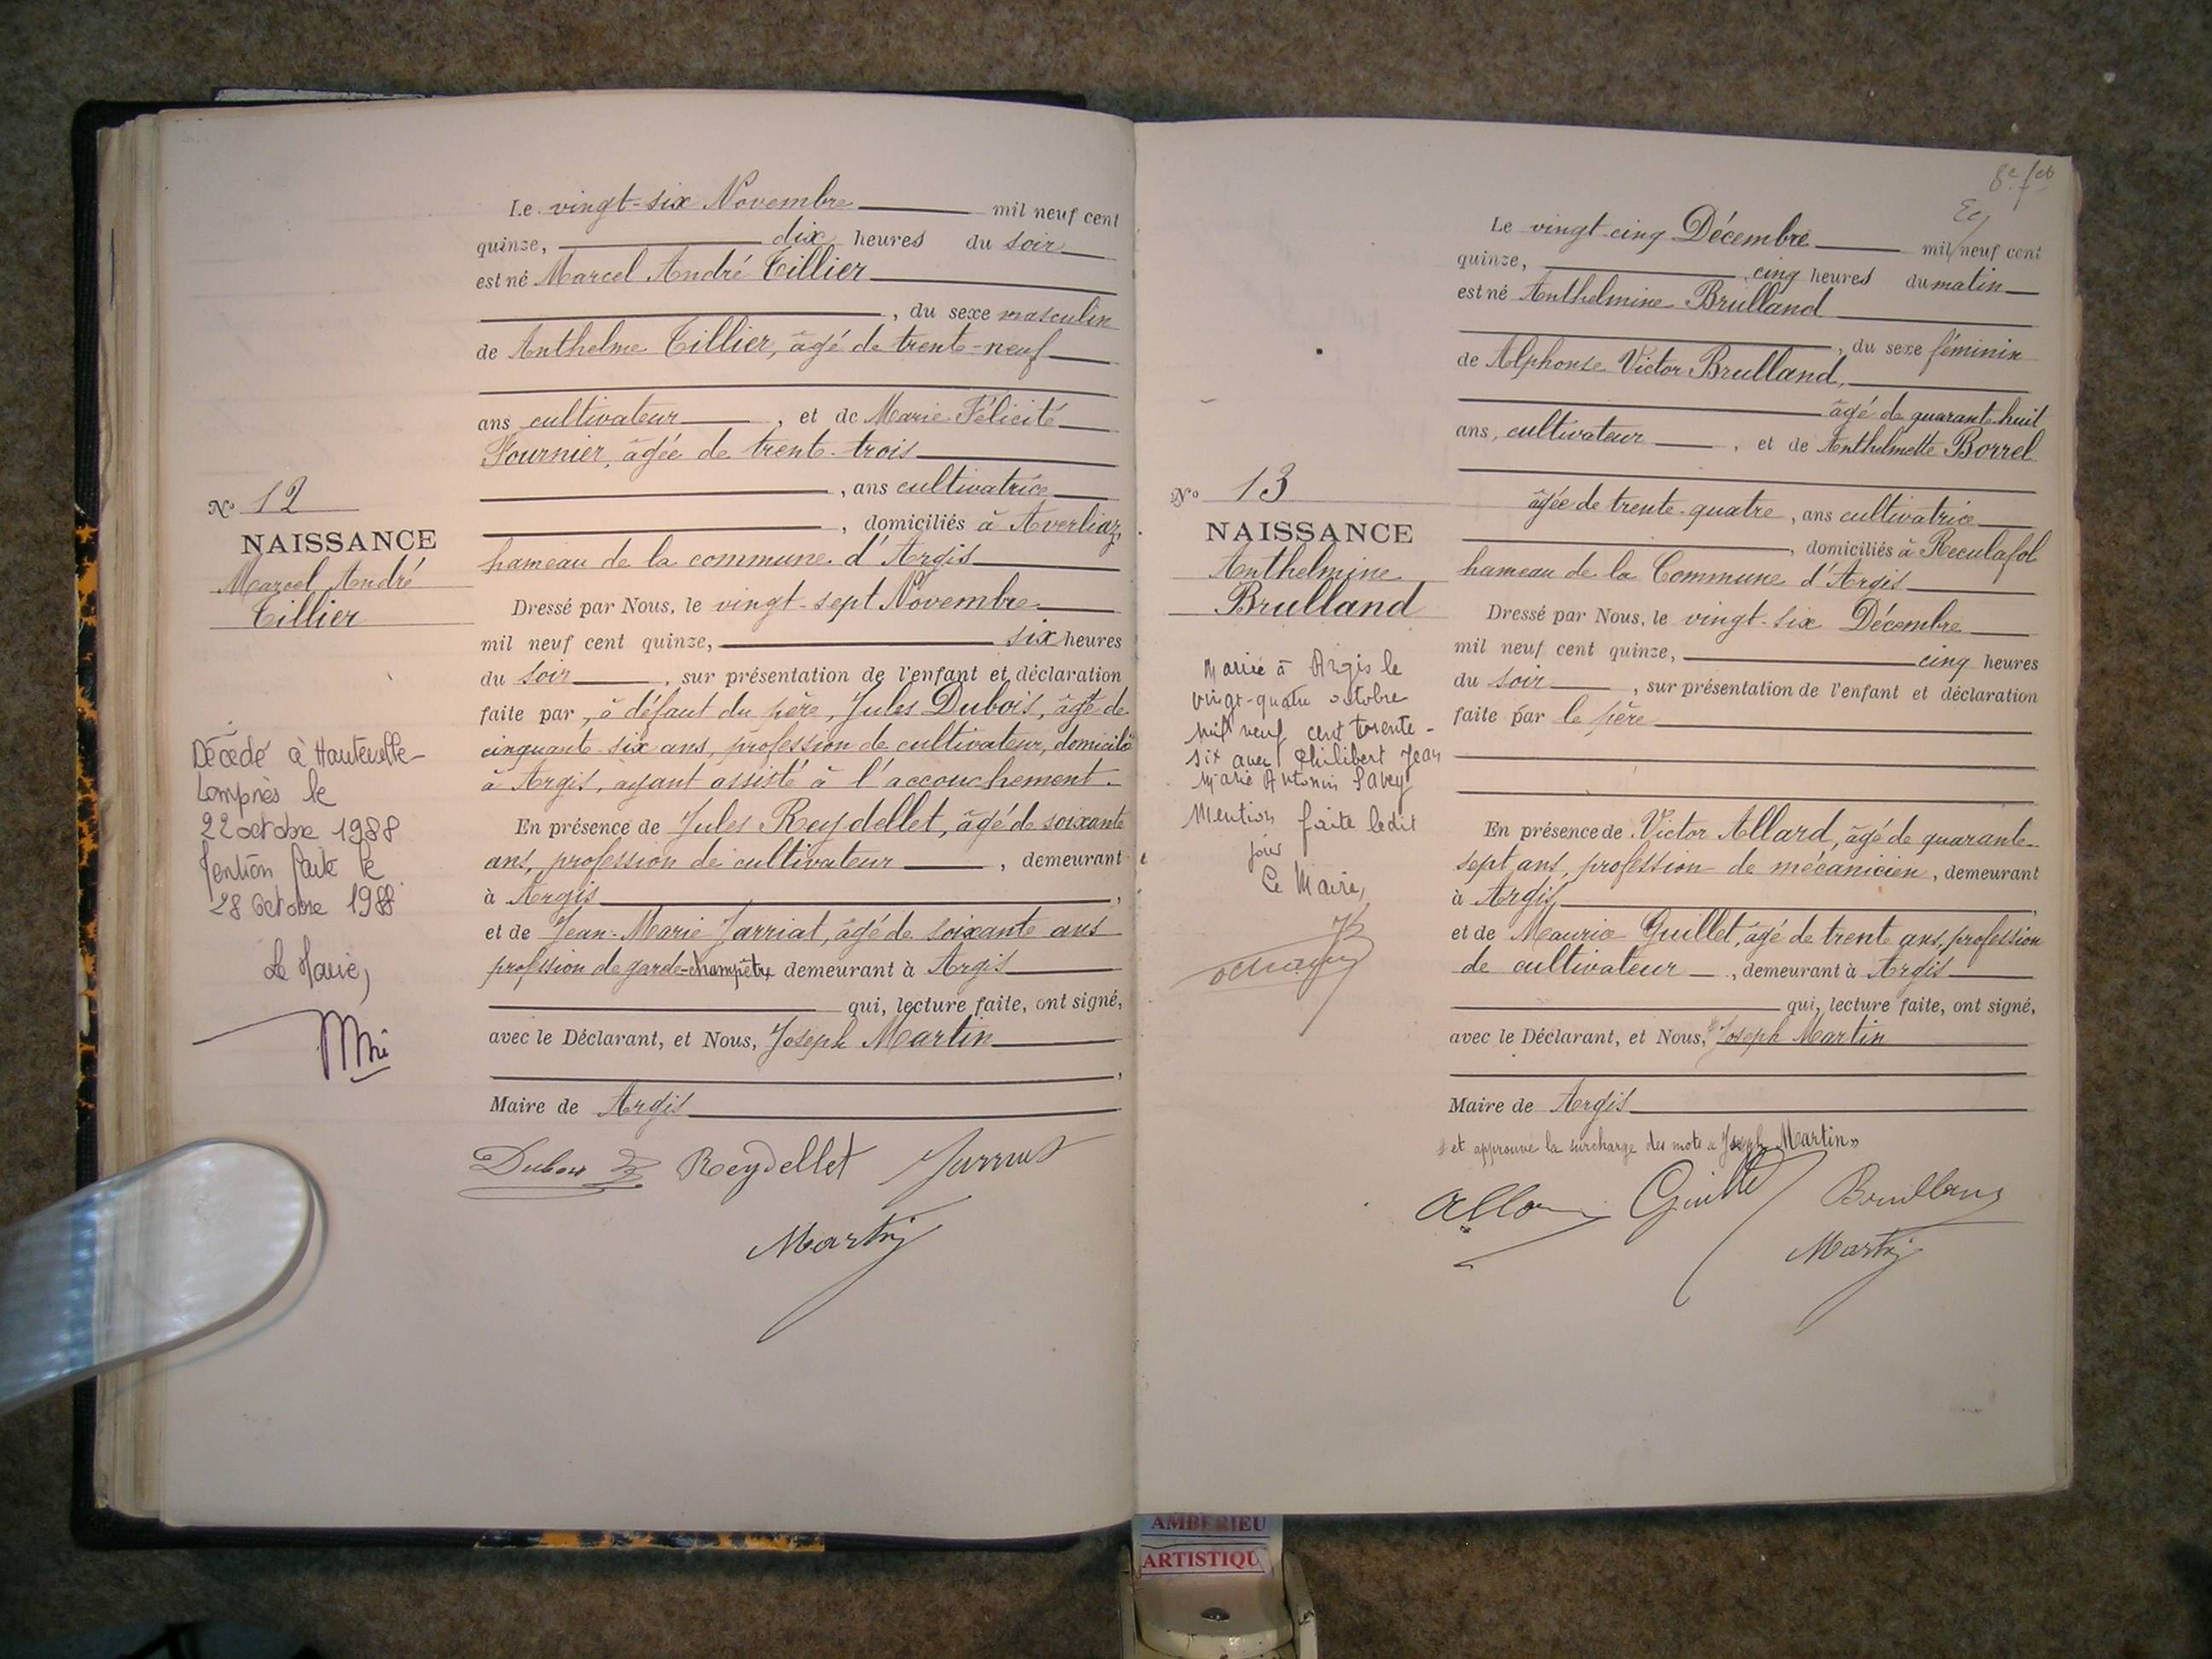 Le vingt-six Novembre mil neuf cent
quinze, dix heures du soir
est né Marcel André Tillier
, du sexe masculin
de Anthelme Tillier, âgé de trente-neuf
ans cultivateur , et de Marie Félicité
Fournier, âgée de trente-trois
, ans cultivatrice
, domiciliés à Averliaz,
hameau de la commune d'Argis
Nº 12
NAISSANCE
Marcel André
Tillier
Dressé par Nous, le vingt-sept Novembre
mil neuf cent quinze, six heures
du soir , sur présentation de l'enfant et déclaration
faite par , à défaut du père, Jules Dubois, âgé de
cinquante-six ans, profession de cultivateur, domicilié
à Argis, ayant assisté à l'accouchement.
En présence de Jules Reydellet, âgé de soixante
ans, profession de cultivateur , demeurant
à Argis ,
et de Jean-Marie Jarriat, âgé de soixante ans
profession de garde-champêtre demeurant à Argis
qui, lecture faite, ont signé,
avec le Déclarant, et Nous, Joseph Martin
,
Maire de Argis
Décédé à Hauteville-
Lompnès le
22 octobre 1988
Mention faite le
28 octobre 1988
Le Maire,
Dubois Reydellet Jarriat
Martin
8e
Le vingt-cinq Décembre mil neuf cent
quinze, cinq heures du matin
est né Anthelmine Brulland
, du sexe féminin
de Alphonse Victor Brulland,
âgé de quarante-huit
ans, cultivateur , et de Anthelmette Borrel
âgée de trente-quatre, ans cultivatrice
, domiciliés à Reculafol
hameau de la Commune d'Argis
Nº 13
NAISSANCE
Anthelmine
Brulland
Dressé par Nous, le vingt-six Décembre
mil neuf cent quinze, cinq heures
du soir , sur présentation de l'enfant et déclaration
faite par le père
En présence de Victor Allard, âgé de quarante-
sept ans, profession de mécanicien, demeurant
à Argis, ,
et de Maurice Guillet, âgé de trente ans, profession
de cultivateur , demeurant à Argis
qui, lecture faite, ont signé,
avec le Déclarant, et Nous, Joseph Martin
Maire de Argis
et approuvé la surcharge des mots « Joseph Martin »
Mariée à Argis le
vingt-quatre octobre
mil neuf cent trente-
six avec Philibert Jean
Marie Antonin Savey
Mention faite ledit
jour
Le Maire,
Guillet Brulland
Martin
AMBERIEU
ARTISTIQU